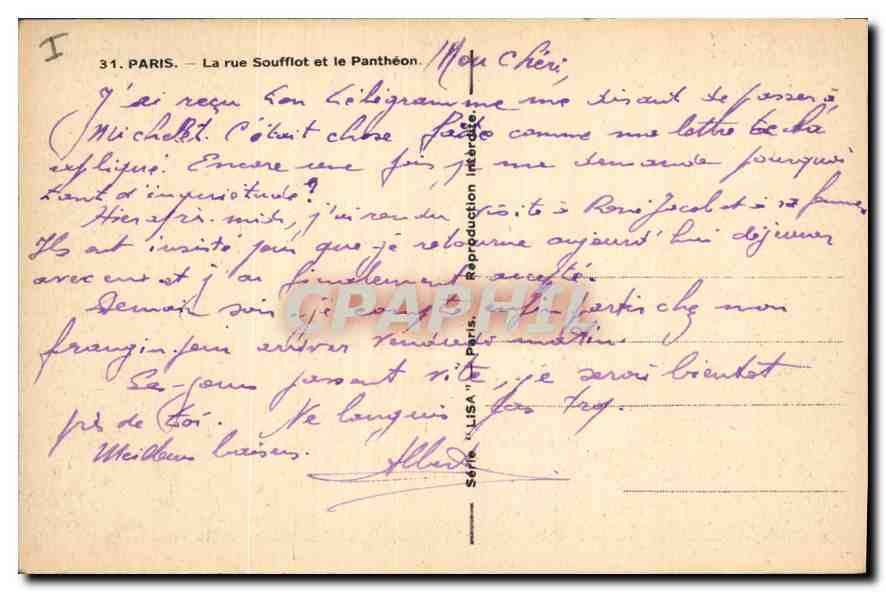 I
31. PARIS. - La rue Soufflot et le Panthéon.
Mon Chéri,
J'ai reçu ton télégramme me disant de passer à
Michelet. C'était chose faite comme ma lettre te l'a
expliqué. Encore une fois je me demande pourquoi
tant d'inquiétude?
Hier après-midi, j'ai rendu visite à René Jacob et à sa femme.
Ils ont insisté pour que je retourne aujourd'hui déjeuner
avec eux et j'ai finalement accepté.
Demain soir, je compte enfin partir chez mon
frangin pour arriver vendredi matin.
Les jours passent vite, je serai bientôt
près de toi. Ne languis pas trop.
Meilleurs baisers.
Albert
Série "LISA" Paris. Reproduction Interdite.
CPAPHIL